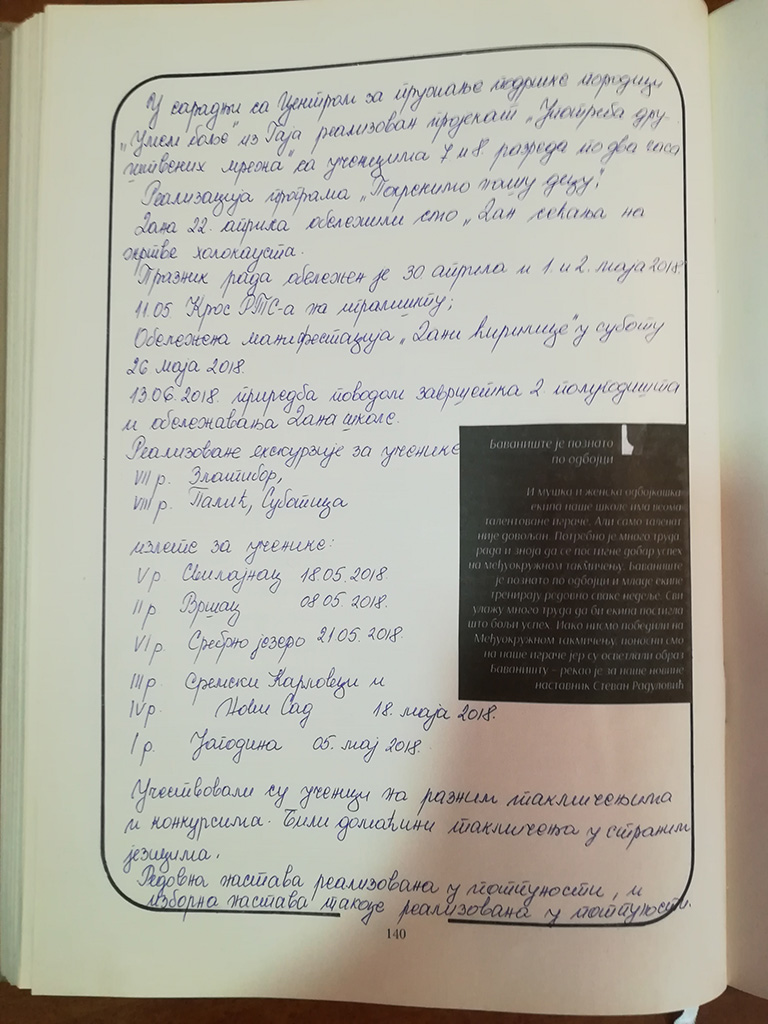 У сарадњи са Центром за пружање подршке породици
„Умем боље" из Гаја реализован пројекат „Употреба дру-
штвених мрежа" са ученицима 7 и 8. разреда по два часа
Реализација програма „Покренимо нашу децу";
Дана 22. априла обележили смо „Дан сећања на
жртве холокауста.
Празник рада обележен је 30 априла и 1. и 2. маја 2018.
11.05. Крос РТС-а на игралишту;
Обележена манифестација „Дани ћирилице" у суботу
26 маја 2018.
13.06.2018. приредба поводом завршетка 2 полугодишта
и обележавања Дана школе.
Реализоване екскурзије за ученике
VII р. Златибор,
VIII р. Палић, Суботица
излете за ученике:
V р Свилајнац 18.05.2018.
II р Вршац 08.05.2018.
VI р. Сребрно језеро 21.05.2018.
III р. Сремски Карловци и
IV р. Нови Сад 18. маја 2018.
I р. Јагодина 05. мај 2018.
Учествовали су ученици на разним такмичењима
и конкурсима. Били домаћини такмичења у страним
језицима.
Редовна настава реализована у потпуности, и
изборна настава такође реализована у потпуности.
Баваниште је познато
по одбојци
И мушка и женска одбојкашка
екипа наше школе има веома
талентоване играче. Али само таленат
није довољан. Потребно је много труда,
рада и зноја да се постигне добар успех
на међуокружном такмичењу. Баваниште
је познато по одбојци и младе екипе
тренирају редовно сваке недеље. Сви
улажу много труда да би екипа постигла
што бољи успех. Иако нисмо победили на
Међуокружном такмичењу, поносни смо
на наше играче јер су осветлали образ
Баваништу – рекао је за наше новине
наставник Стеван Радуловић
140